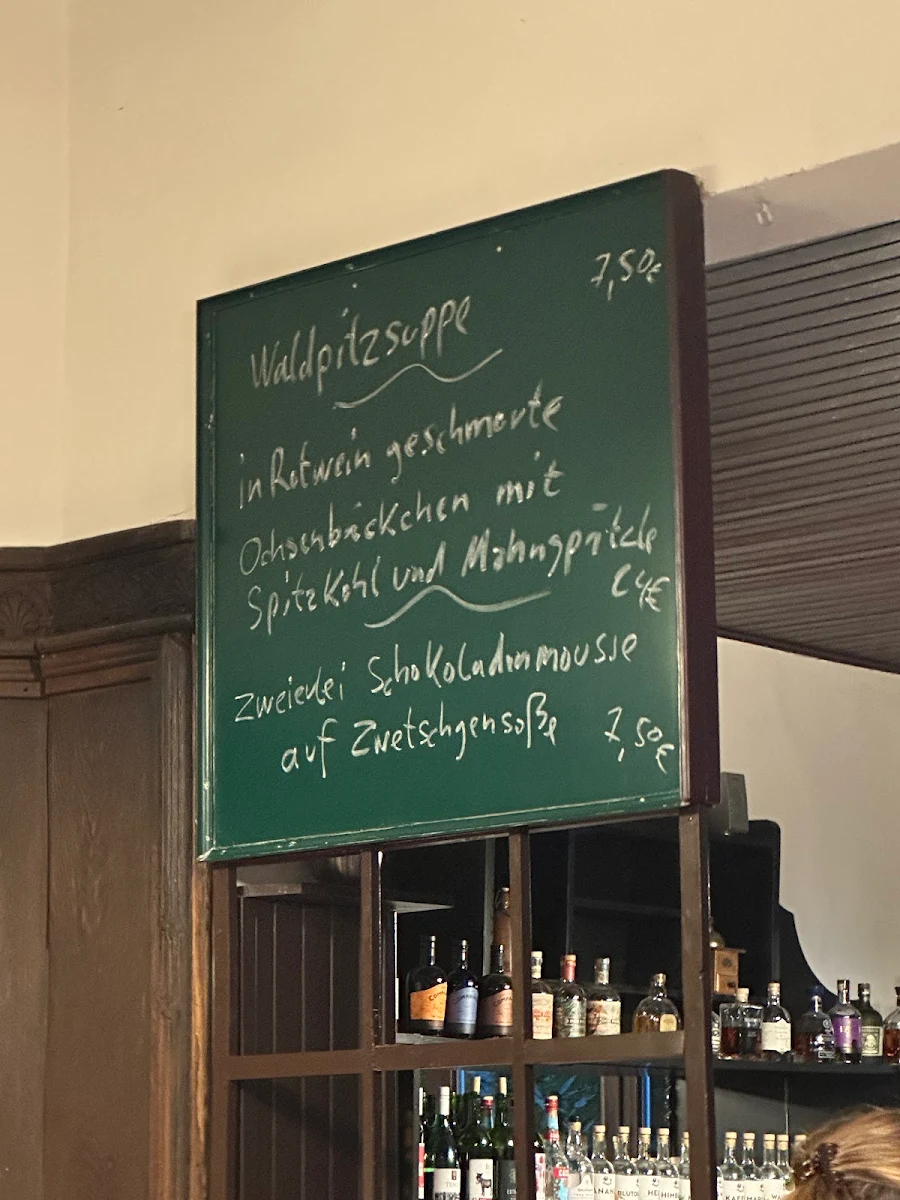 7,50€
Waldpitzsuppe
in Rotwein geschmorte
Ochsenbäckchen mit
Spitzkohl und Mohnspätzle
24€
Zweierlei Schokoladenmousse
auf Zwetschgensoße 7,50€